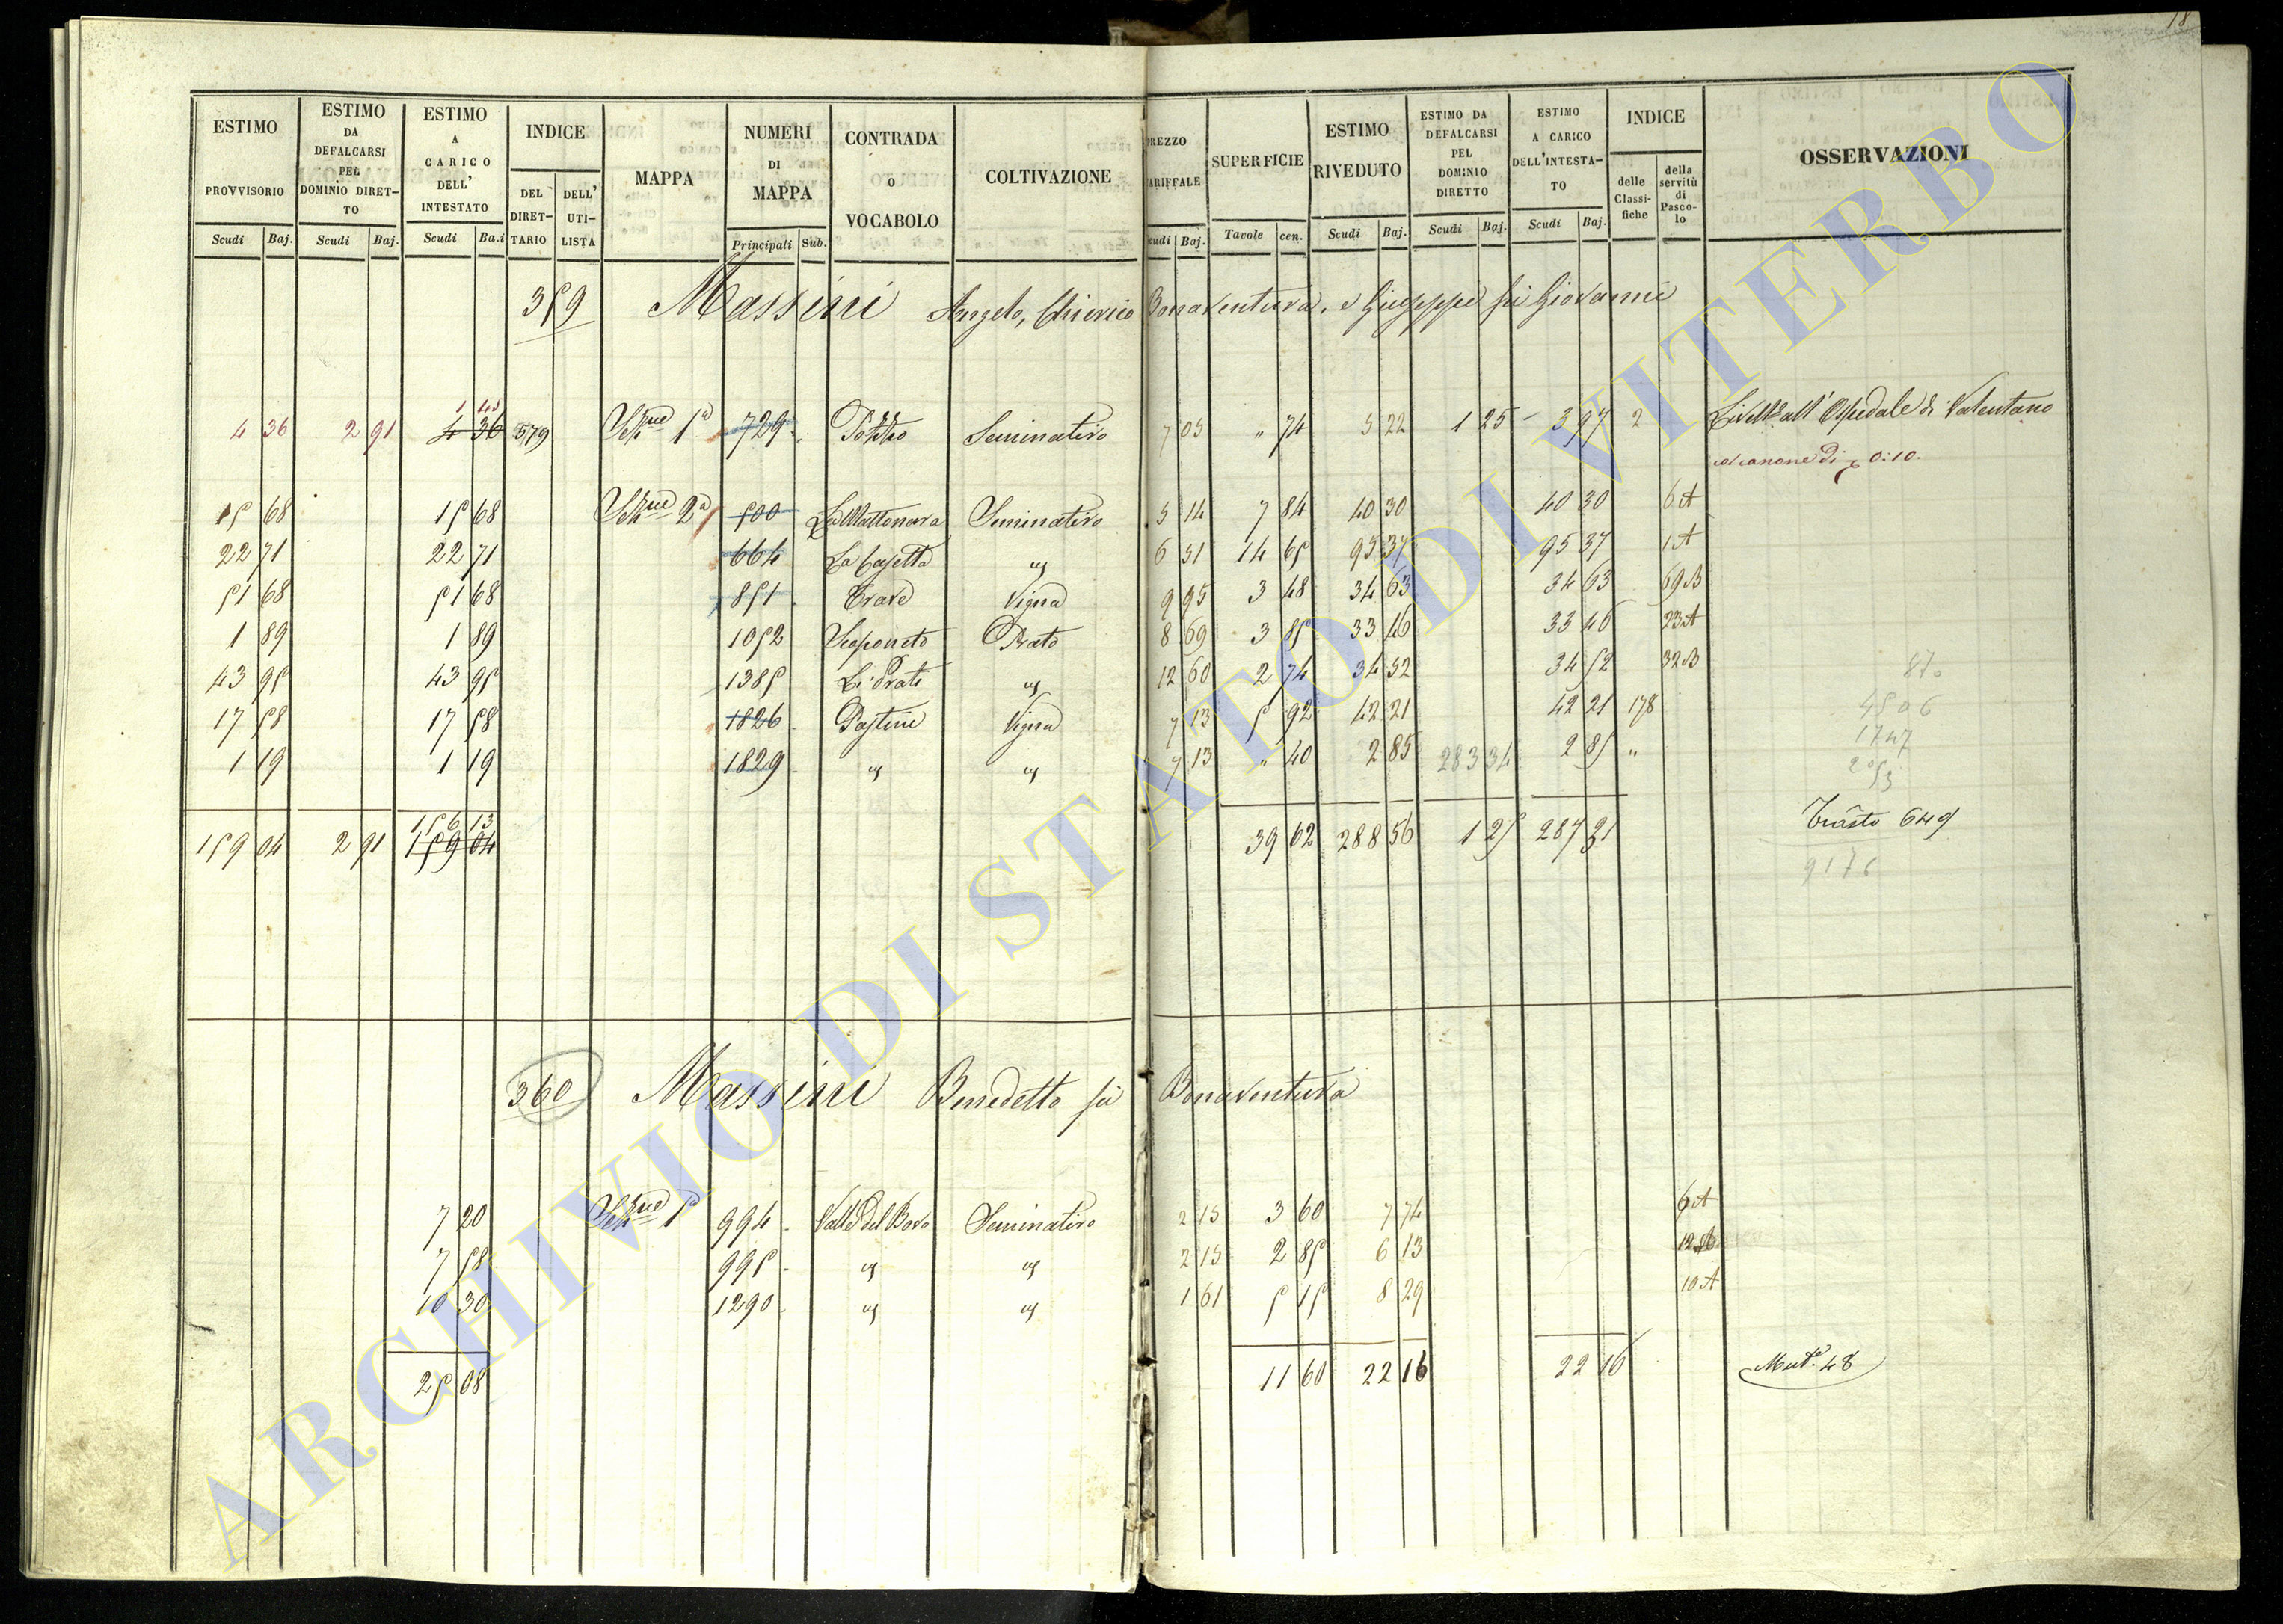 18
ESTIMO PROVVISORIO Scudi Baj. | ESTIMO DA DEFALCARSI PEL DOMINIO DIRETTO Scudi Baj. | ESTIMO A CARICO DELL' INTESTATO Scudi Ba.i | INDICE DEL DIRETTARIO DELL' UTILISTA | MAPPA | NUMERI DI MAPPA Principali Sub. | CONTRADA O VOCABOLO | COLTIVAZIONE | PREZZO TARIFFALE Scudi Baj. | SUPERFICIE Tavole cen. | ESTIMO RIVEDUTO Scudi Baj. | ESTIMO DA DEFALCARSI PEL DOMINIO DIRETTO Scudi Baj. | ESTIMO A CARICO DELL'INTESTATO Scudi Baj. | INDICE delle Classifiche della servitù di Pascolo | OSSERVAZIONI
359 Massini Angelo, Chierico Bonaventura, e Giuseppe fù Giovanni
1 45
4 36 2 91 4 36 579 Sez.ne 1a 729 Seminativo 7 05 " 74 5 22 1 25 3 97 2 Livell. all' Ospedale di Valentano
col canone di 0:10.
15 68 15 68 Sez.ne 2a 500 La Mattonara Seminativo 5 14 7 84 40 30 40 30 6A
22 71 22 71 664 La Casetta " 6 51 14 65 95 37 95 37 1A
51 68 51 68 851 Trave Vigna 9 95 3 48 34 63 34 63 69B
1 89 1 89 1052 Scoponeto Prato 8 69 3 85 33 46 33 46 23A
43 95 43 95 1385 Li Prati " 12 60 2 74 34 52 34 52 32B
870
17 58 17 58 1826 Pastine Vigna 7 13 5 92 42 21 42 21 178
4506
1 19 1 19 1829 " " 7 13 " 40 2 85 283 34 2 85 "
1747
2053
156 13
159 04 2 91 159 04 39 62 288 56 1 25 287 31 Trasto 649
9176
360 Massini Benedetto fù Bonaventura
7 20 Sez.ne 1a 994 Valle del Bovo Seminativo 2 15 3 60 7 74 6A
7 58 995 " " 2 15 2 85 6 13
10 30 1290 " " 1 61 5 15 8 29 10A
25 08 11 60 22 16 22 16 Mut.e 48
ARCHIVIO DI STATO DI VITERBO